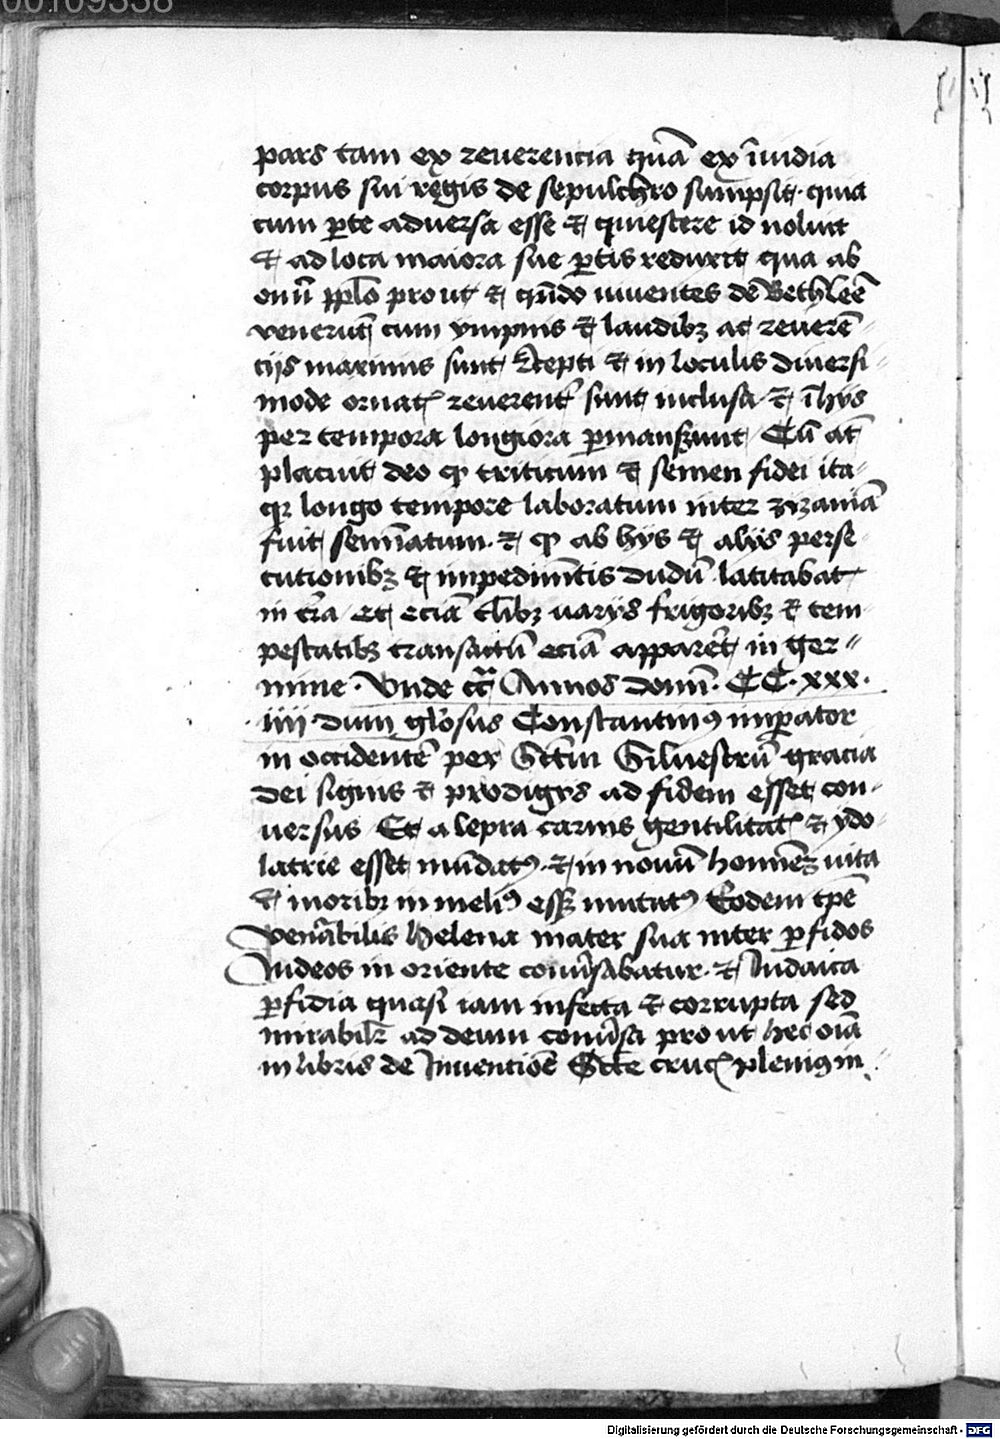 00109338
pars tam ex reuerencia quā ex īuidia
corpus sui regis de sepulchro sumpsit · quia
cum ꝑte aduersa esse et quiescere id noluit
et ad loca maiora sue ꝑtis reduxit qua ab
om̄i ppl̄o prout et qn̄do uiuentes de Bethleē
venerūt cum ympnis et laudibꝫ ac reuerē⸗
tijs maximis sunt recepti et in loculis diuersi⸗
mode ornatꝭ reuerent᷑ sunt inclusa et ī hijs
per tempora longiora ꝑmanserunt Cū at̄
placuit deo ꝙ triticum et semen fidei ita⸗
qꝫ longo tempore laboratum inter zizaniā
fuit semīatum · et ꝙ ab hijs et alijs perse⸗
cutionibꝫ et impedimētis dudū latitabat
in tr̄a et eciā t̄libꝫ varijs frigoribꝫ et tem⸗
pestatibꝫ transactū eciā apparēt in ger⸗
mine · Vnde cc̄ Annos domī · CC · xxx ·
iiii dum gl̄osus Constantinꝰ imꝑator
in occidentē per Sctm̄ Siluestrū gracia
dei signis et prodigijs ad fidem esset con⸗
uersus Et a lepra carnis gentilitatꝭ et ydo⸗
latrie esset mūdatꝰ · et in nouū hominē vita
et moribꝫ in meliꝰ esset mutatꝰ Eodem tp̄e
venēabilis Helena mater sua inter ꝑfidos
Iudeos in oriente conūsabatur · et Iudaica
ꝑfidia quasi iam infecta et corrupta sed
mirabilr̄ ad deum conūsa prout hec oīa
in libris de Inuentiōe Scte crucꝭ pleniꝰ in⸗
Digitalisierung gefördert durch die Deutsche Forschungsgemeinschaft - DFG